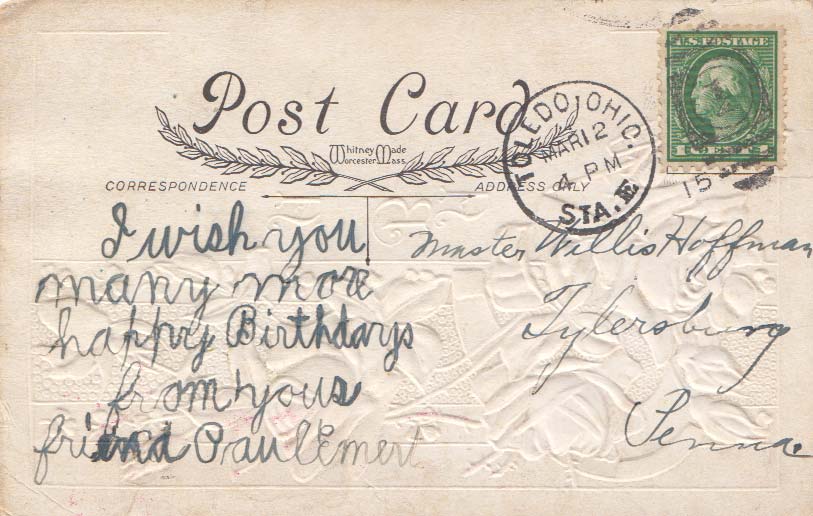 U.S. POSTAGE
Post Card
TOLEDO, OHIO.
MAR 12
4 PM
15
STA. E
Whitney Made
Worcester, Mass.
CORRESPONDENCE
ADDRESS ONLY
I wish you
many more
happy Birthdays
from your
friend Paul Emert
Master Willis Hoffman
Tylersburg
Penna.